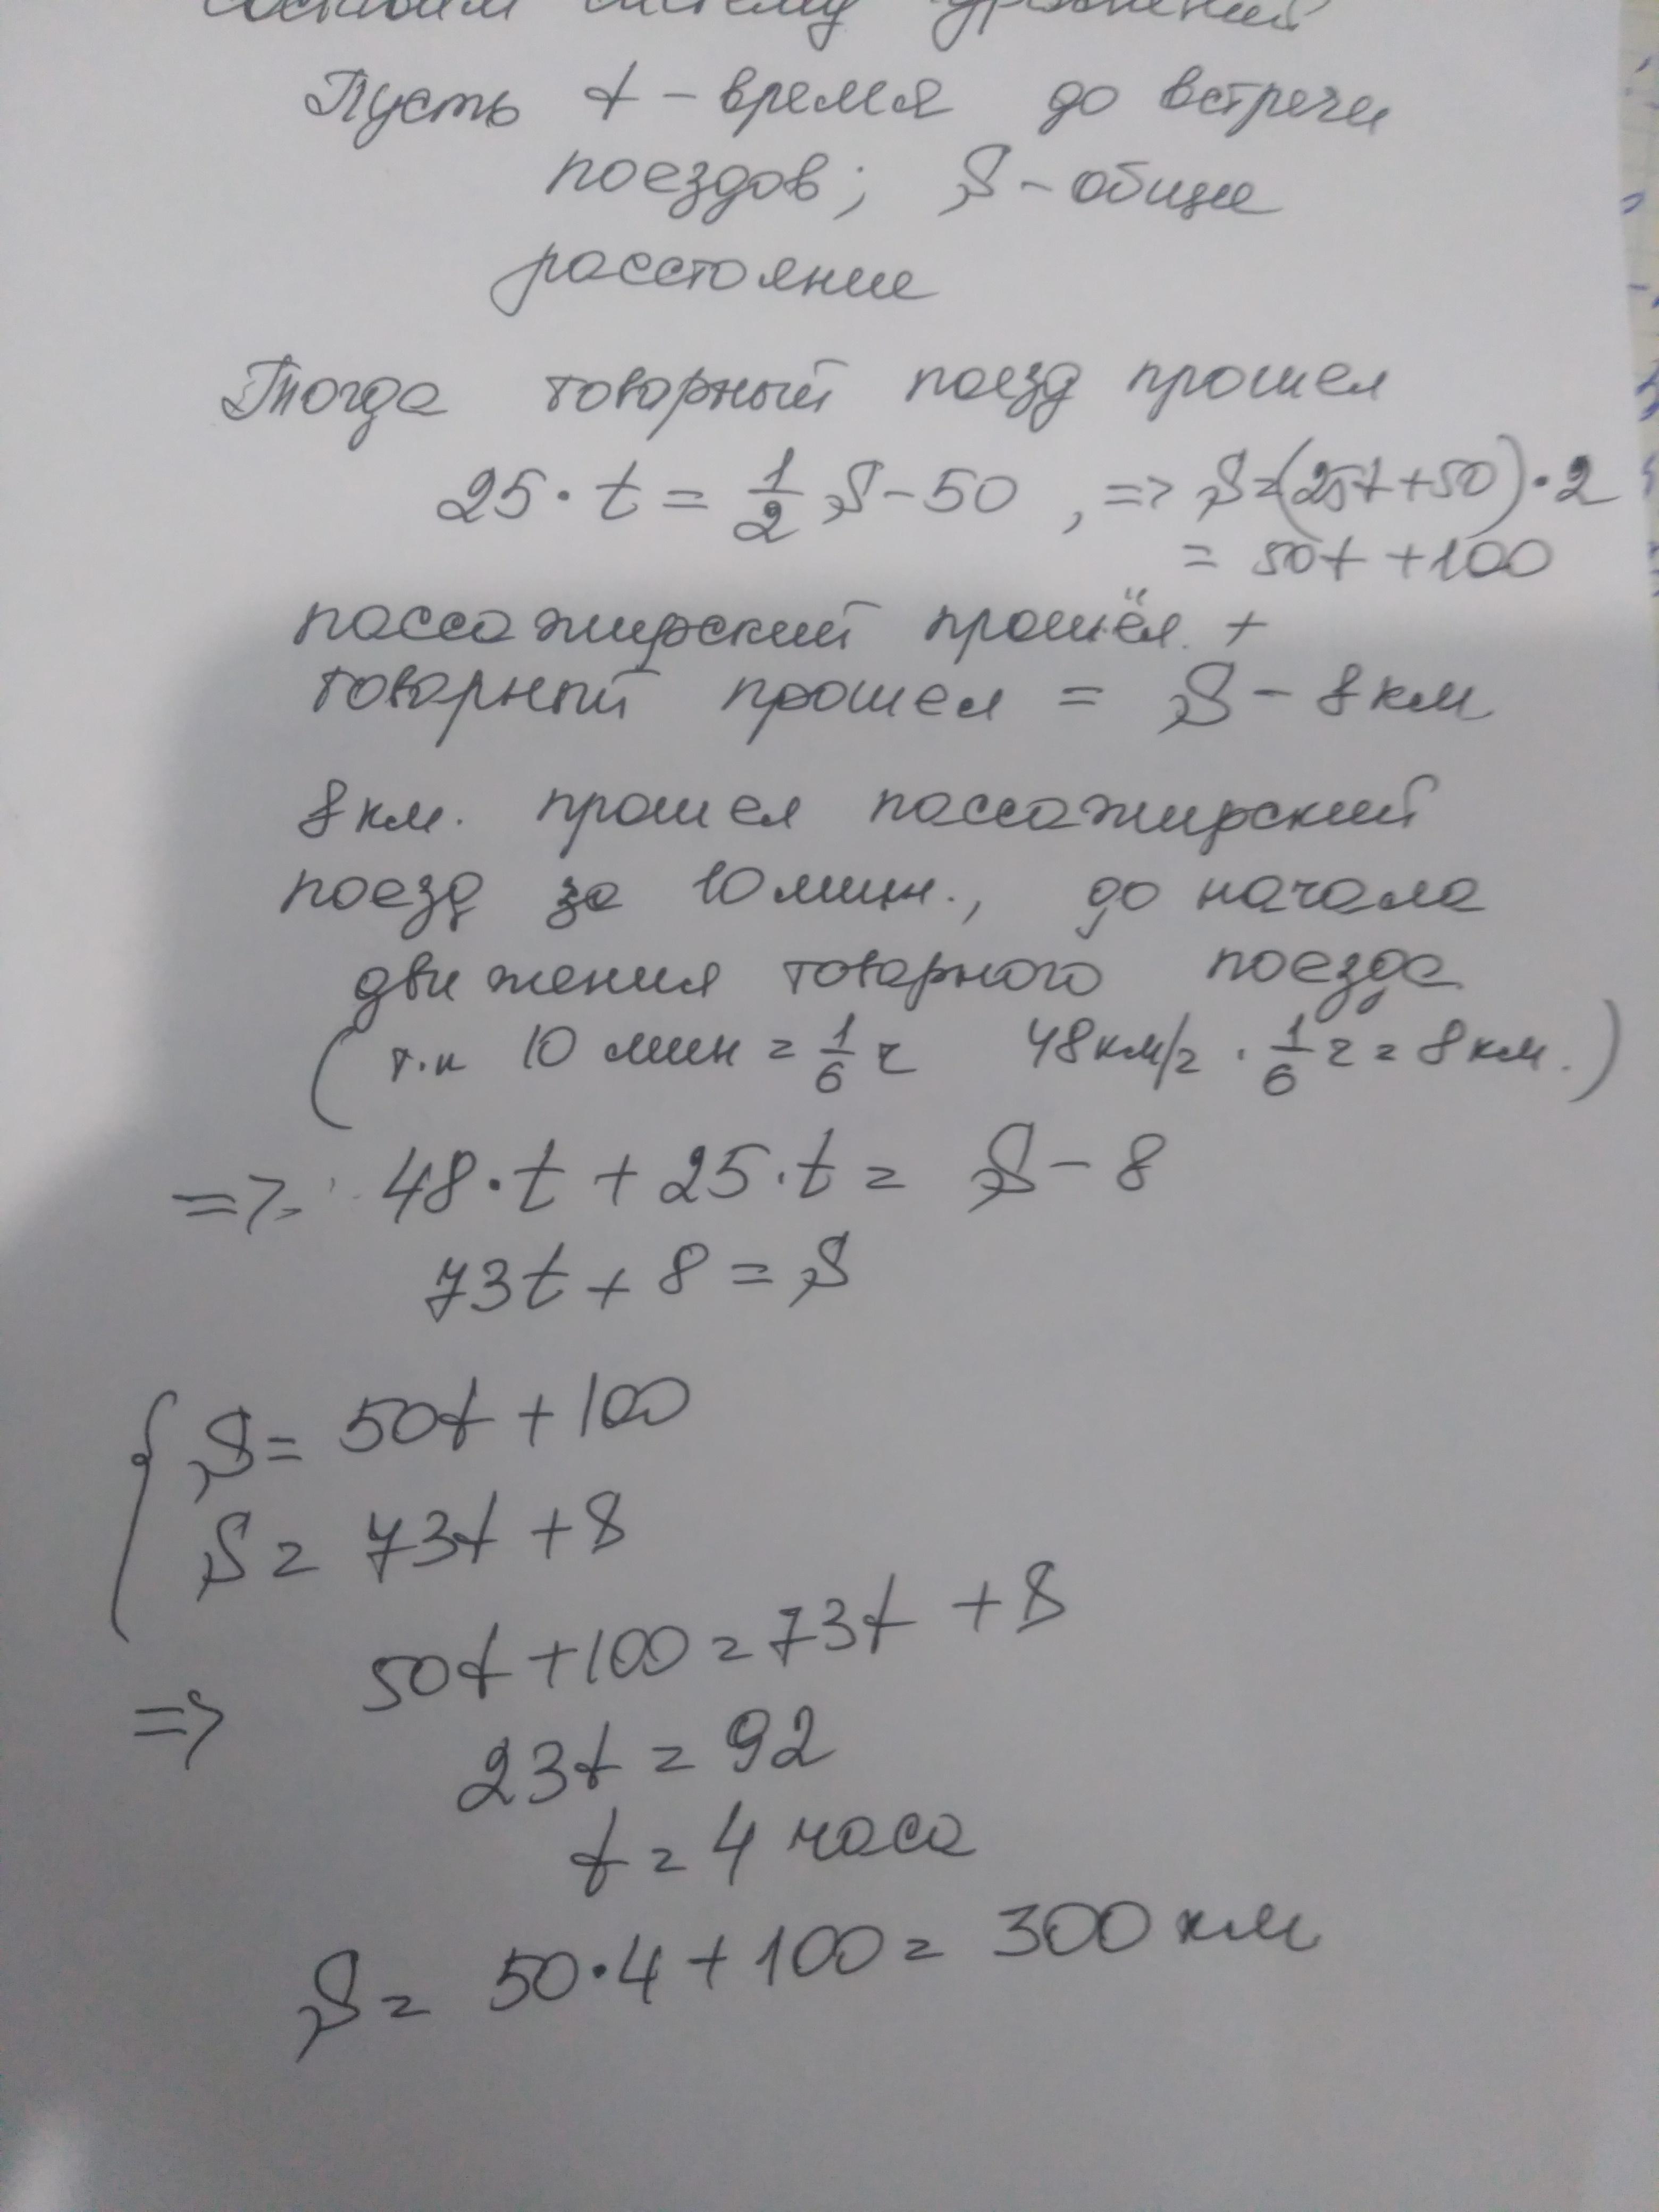 составим систему уравнений
Пусть t - время до встречи
поездов; S - общее
расстояние
Тогда товарный поезд прошел
25 · t = 1/2 S - 50, => S = (25t + 50) · 2
= 50t + 100
пассажирский прошёл +
товарный прошел = S - 8 км
8 км. прошел пассажирский
поезд за 10 мин., до начала
движения товарного поезда
(т.к 10 мин = 1/6 ч 48 км/ч · 1/6 ч = 8 км.)
=> 48 · t + 25 · t = S - 8
73t + 8 = S
{ S = 50t + 100
S = 73t + 8
=> 50t + 100 = 73t + 8
23t = 92
t = 4 часа
S = 50 · 4 + 100 = 300 км